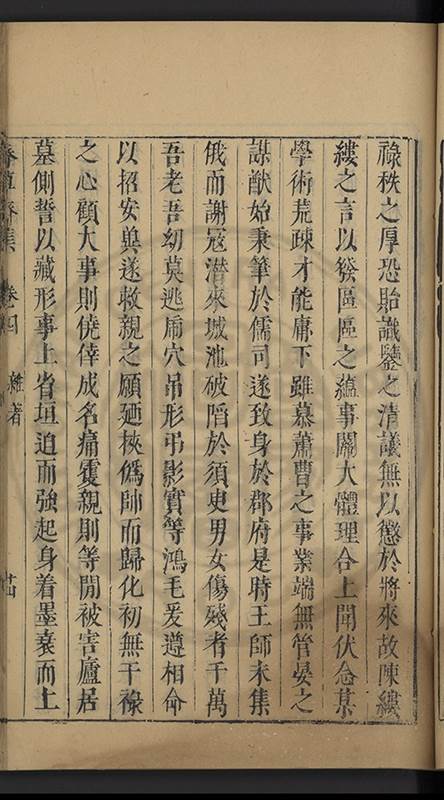 祿秩之厚恐貽識鑒之清議無以懲於將來故陳縷
縷之言以發區區之蘊事關大體理合上聞伏念某
學術荒疎才能庸下雖慕蕭曹之事業端無管晏之
謀猷始秉筆於儒司遂致身於郡府是時王師未集
俄而謝寇潛來城池破陷於須臾男女傷殘者千萬
吾老吾幼莫逃鬲穴吊形弔影實等鴻毛爰遵相命
以招安與遂救親之願廼挾僞帥而歸化初無干祿
之心顧大事則僥倖成名痛雙親則等閒被害廬居
墓側誓以藏形事上省垣追而強起身着墨衰而上
集 卷四 雜著